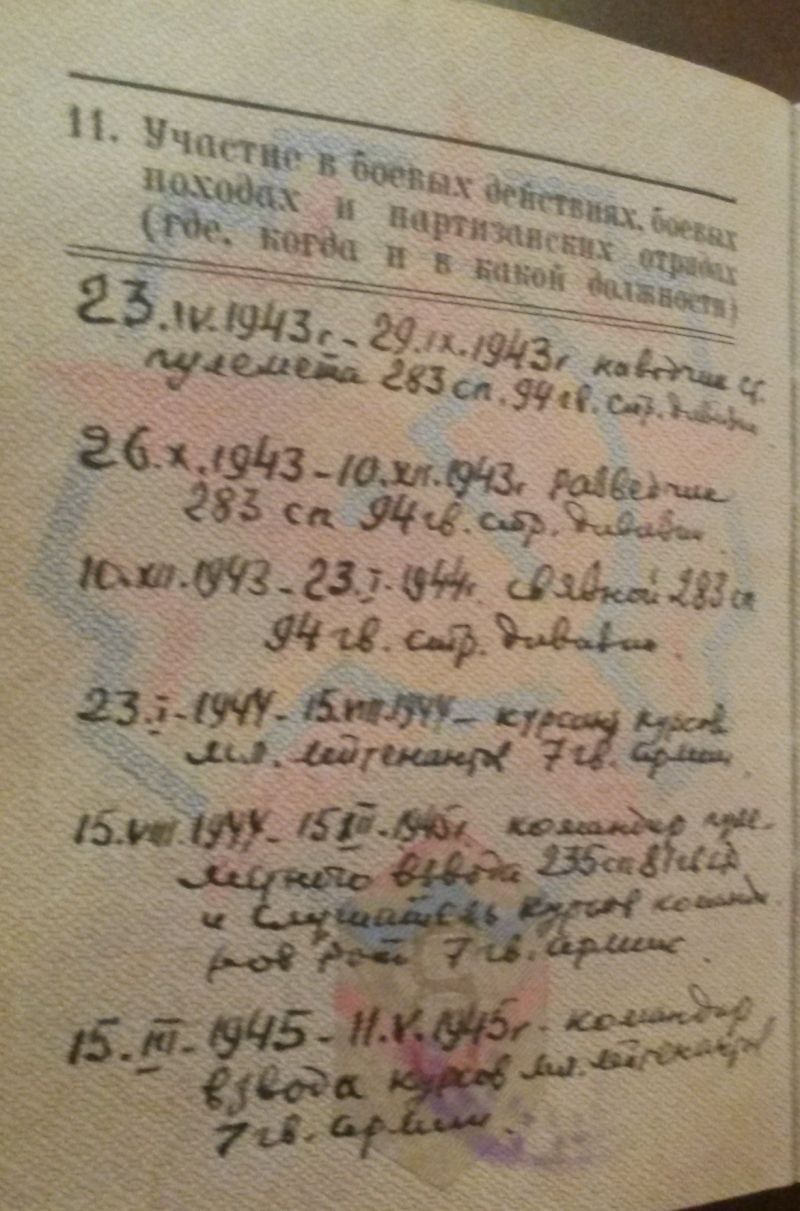 11. Участие в боевых действиях, боевых
походах и партизанских отрядах
(где, когда и в какой должности)
23.IV.1943г - 29.IX.1943г наводчик ст.
пулемета 283 сп. 94 гв. стр. дивизии
26.X.1943 - 10.XII.1943г разведчик
283 сп 94 гв. стр. дивизии
10.XII.1943 - 23.I-1944г. связной 283 сп
94 гв. стр. дивизии.
23.I-1944 - 15.VIII-1944 - курсант курсов
мл. лейтенантов 7 гв. армии.
15.VIII.1944 - 15 III-1945г. командир пуле-
метного взвода 235 сп 81 гв сд
и слушатель курсов команди-
ров рот 7 гв. армии.
15.III-1945 - 11.V.1945г - командир
взвода курсов мл. лейтенантов
7 гв. армии.